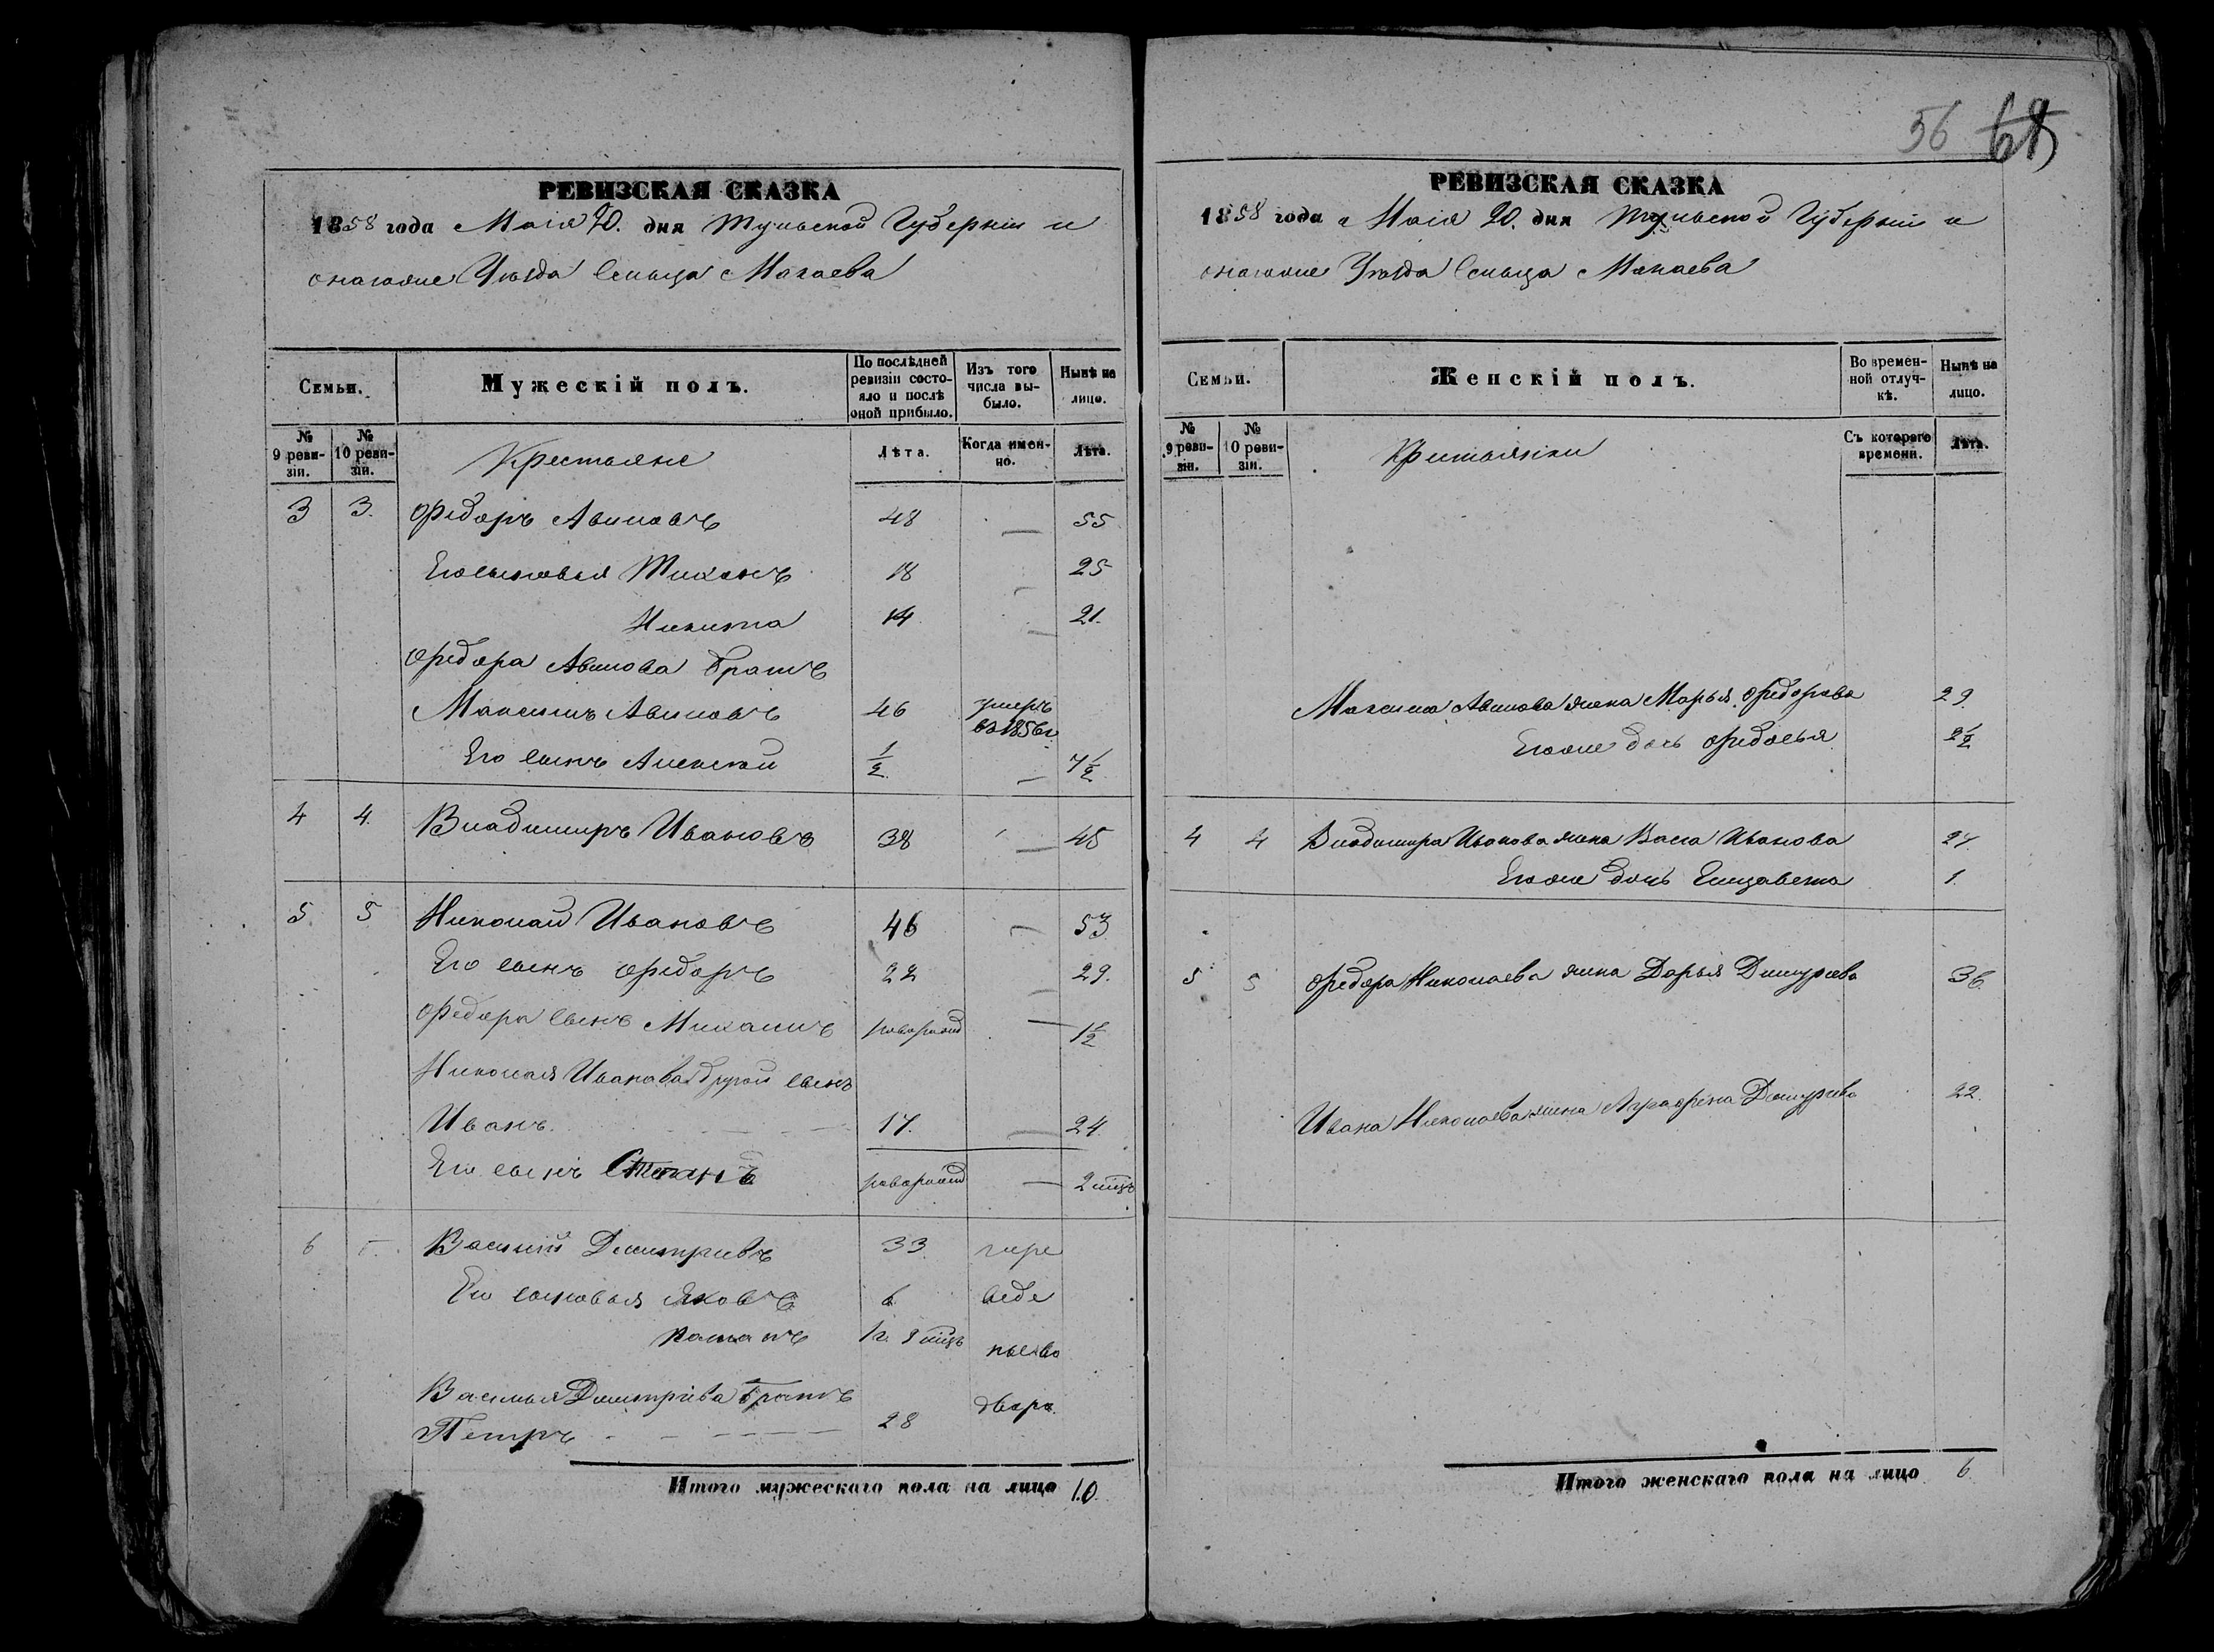 56 68
РЕВИЗСКАЯ СКАЗКА
1858 года Маія 20. дня Тульской Губерніи и
онагоже Уѣзда Сельца Мокаева
Семьи.
Мужескій полъ.
По послѣдней ревизіи состояло и послѣ оной прибыло.
Изъ того числа выбыло.
Нынѣ на лицо.
№ 9 ревизіи.
№ 10 ревизіи.
Крестьяне
Лѣта.
Когда именно.
Лѣта.
3 3. Федоръ Авиловъ 48 — 55
Его сыновья Тихонъ 18 25
Никита 14 — 21.
Федора Авилова братъ
Максимъ Авиловъ 46 умеръ
въ 1856 г.
Его сынъ Алексѣй 1/2 — 7 1/2
4 4. Владимиръ Ивановъ 38 — 45
5. 5 Николай Ивановъ 46 — 53
Его сынъ Федоръ 22 — 29.
Федора сынъ Михаилъ новорожд — 1 1/2
Николая Иванова другой сынъ
Иванъ. 17. — 24.
Его сынъ Степанъ новорожд — 2 мцъ
6 Василій Дмитріевъ 33 пере
Его сыновья Яковъ 6 веде
Романъ 1 г. 9 мцъ ны во
Василья Дмитріева братъ
Петръ 28 дворъ
Итого мужескаго пола на лицо 10.
РЕВИЗСКАЯ СКАЗКА
1858 года Маія 20. дня Тульской Губерніи и
онагоже Уѣзда Сельца Мокаева
Семьи.
Женскій полъ.
Во временной отлучкѣ.
Нынѣ на лицо.
№ 9 ревизіи.
№ 10 ревизіи.
Крестьянки
Съ котораго времени.
Лѣта.
Максима Авилова жена Марья Федорова 29.
Его же дочь Федосья 2 1/2
4 4 Владимира Иванова жена Васса Иванова 27
Его же дочь Елизавета 1.
5 5 Федора Николаева жена Дарья Дмитріева 36.
Ивана Николаева жена Аграфена Дмитріева 22.
Итого женскаго пола на лицо 6